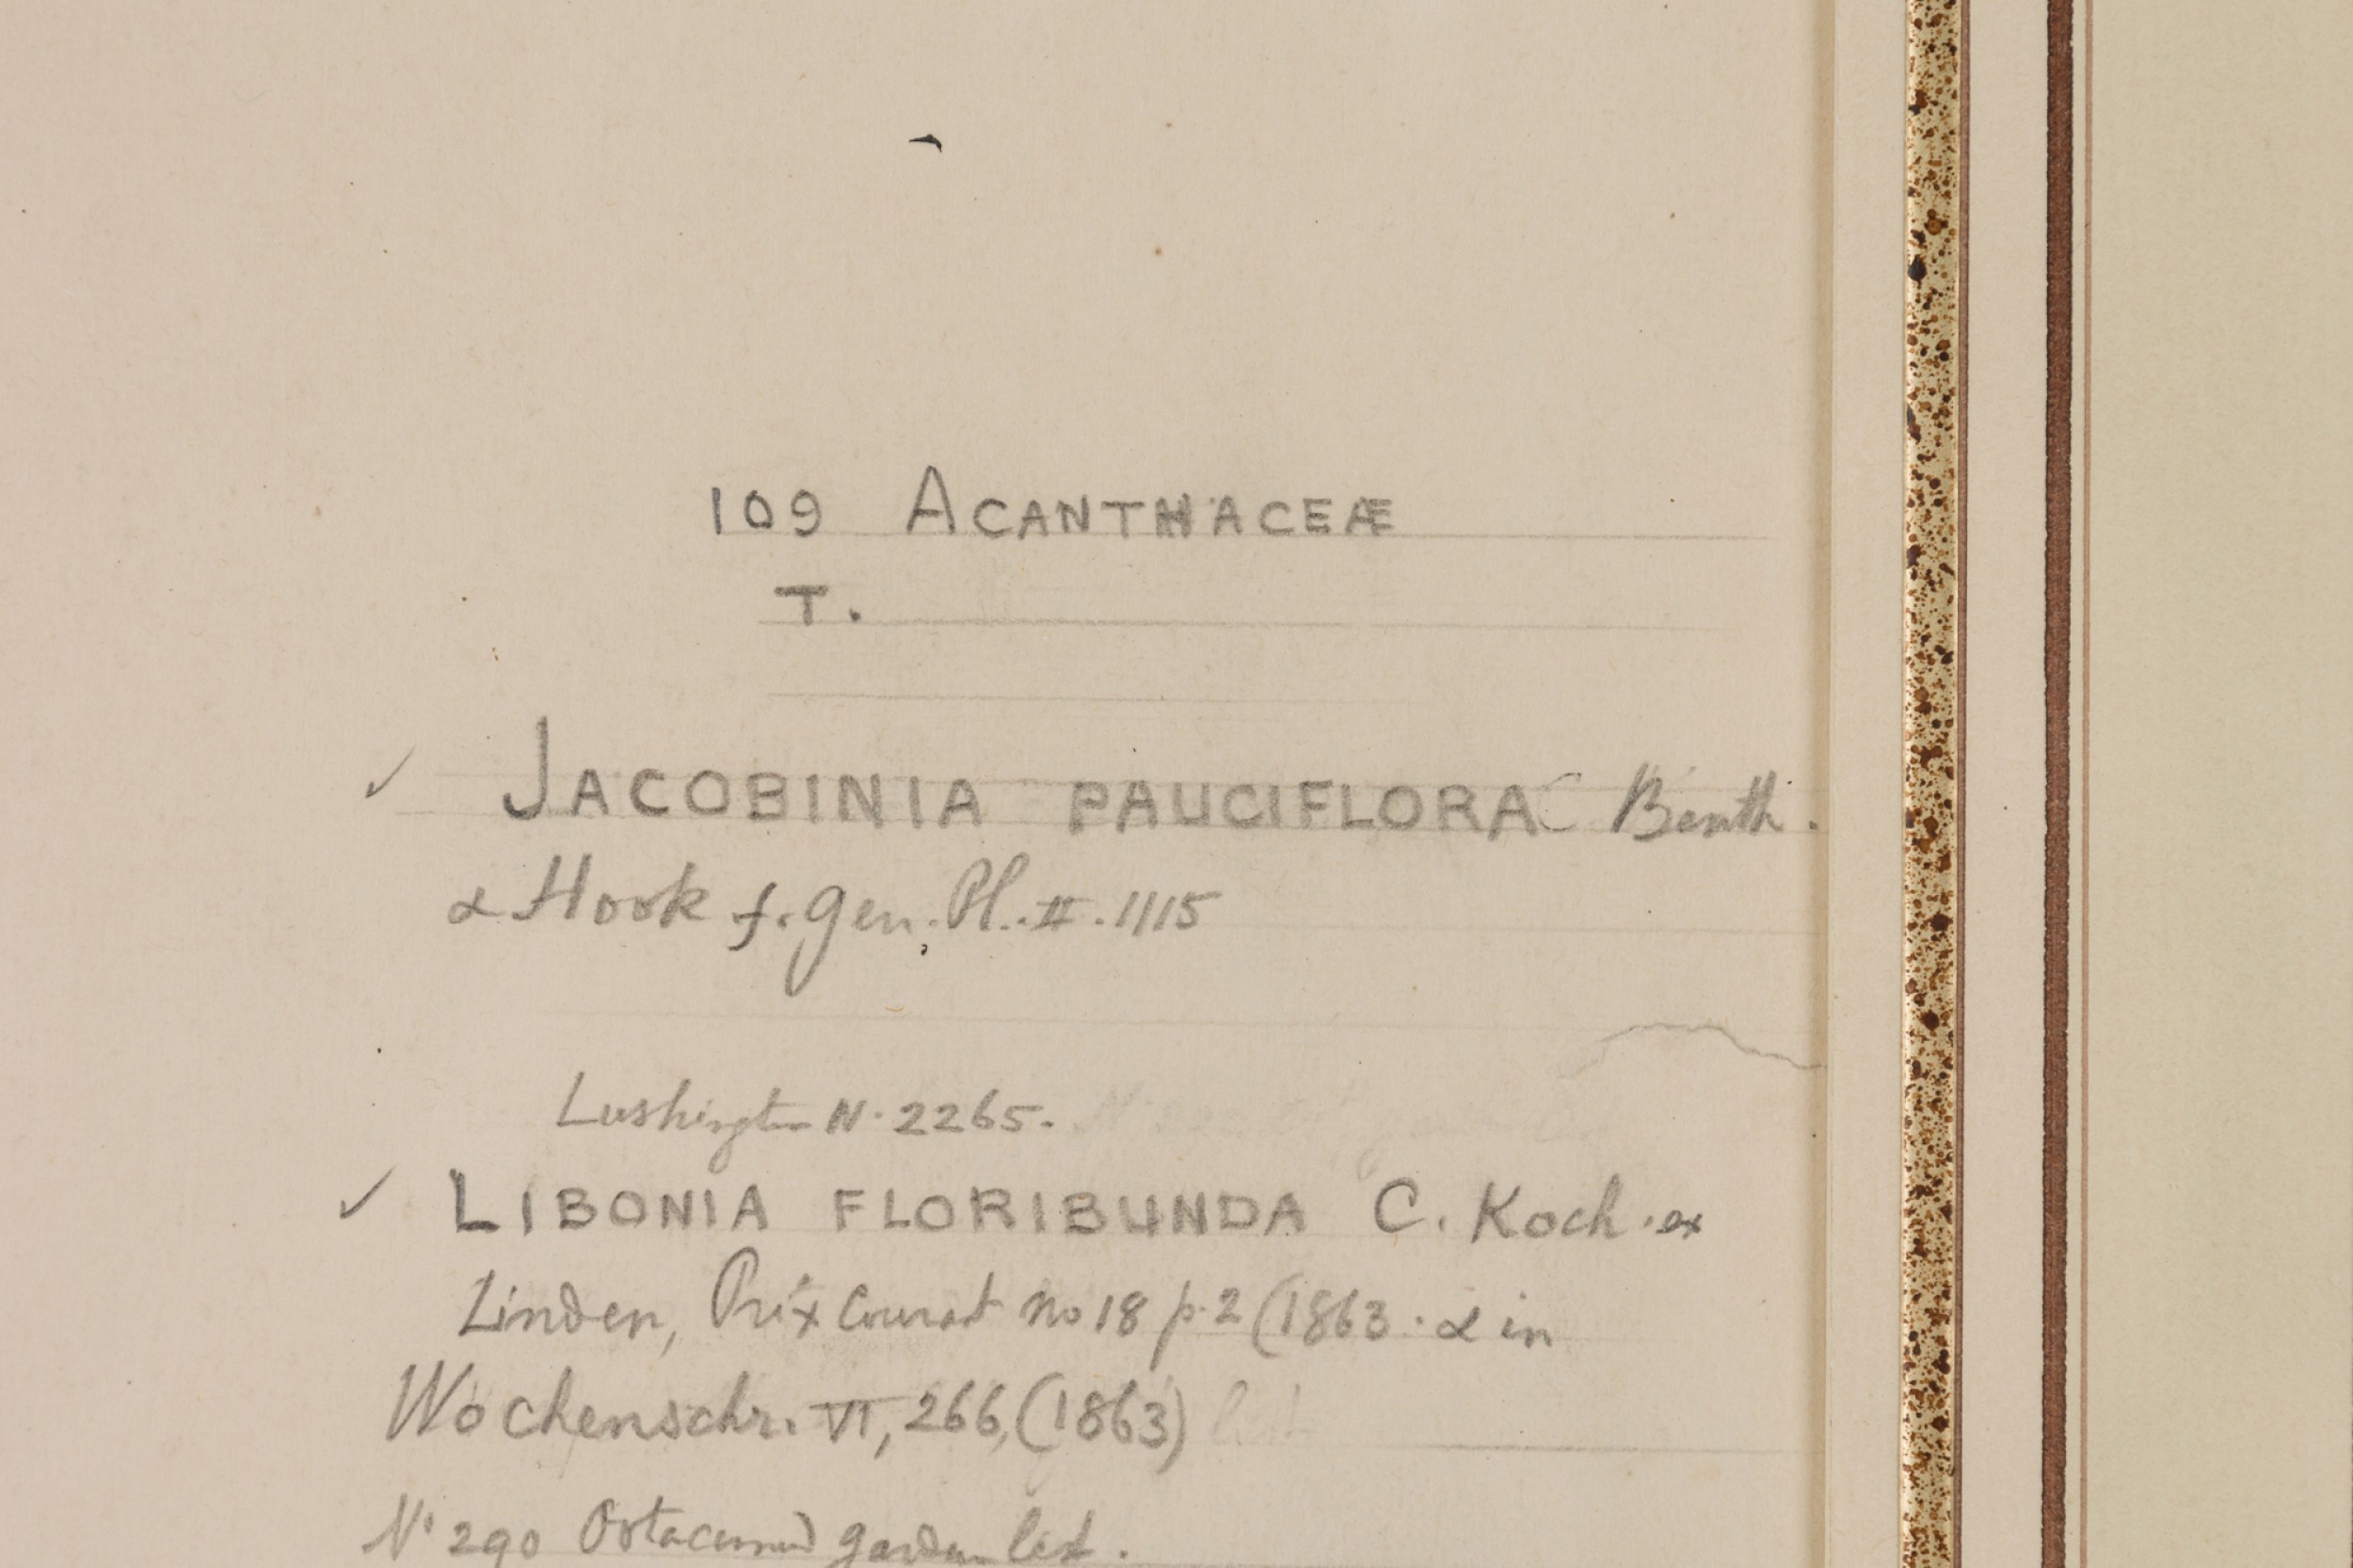 109 ACANTHACEÆ
T.
✓ JACOBINIA PAUCIFLORA Benth.
& Hook f. Gen. Pl. II. 1115
Lushington N. 2265.
✓ LIBONIA FLORIBUNDA C. Koch. ex
Linden, Prix Courant no 18 p. 2 (1863. & in
Wochenschr. VI, 266, (1863)
No 290 Ootacamund garden list.